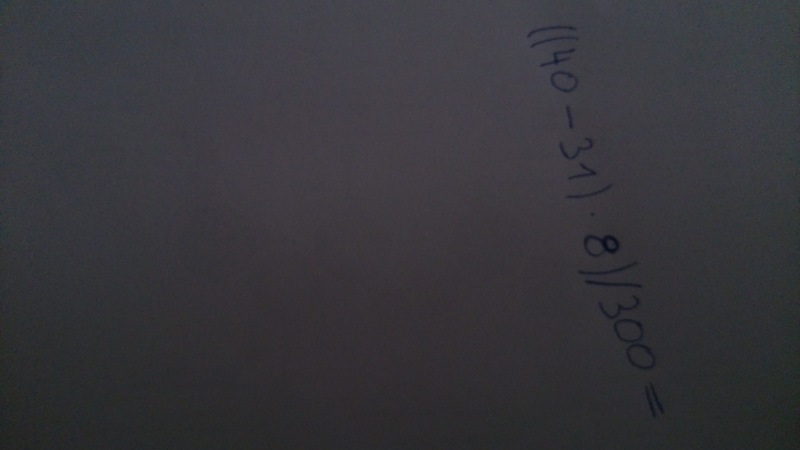 ((40-31)·8)/300=